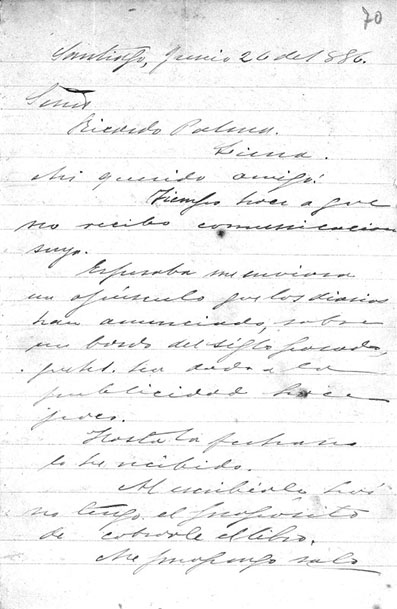 70
Santiago, Junio 26 del 886.
Señor
Ricardo Palma.
Lima.
Mi querido amigo:
Tiempo hace a que
no recibo comunicacion
suya.
Esperaba me enviara
un opúsculo que los diarios
han anunciado, sobre
un bardo del siglo pasado,
que ha dado a la
publicidad hace
poco.
Hasta la fecha no
lo he recibido.
Al escribirle hoi
no tengo el propósito
de cobrarle el libro.
Me propongo solo